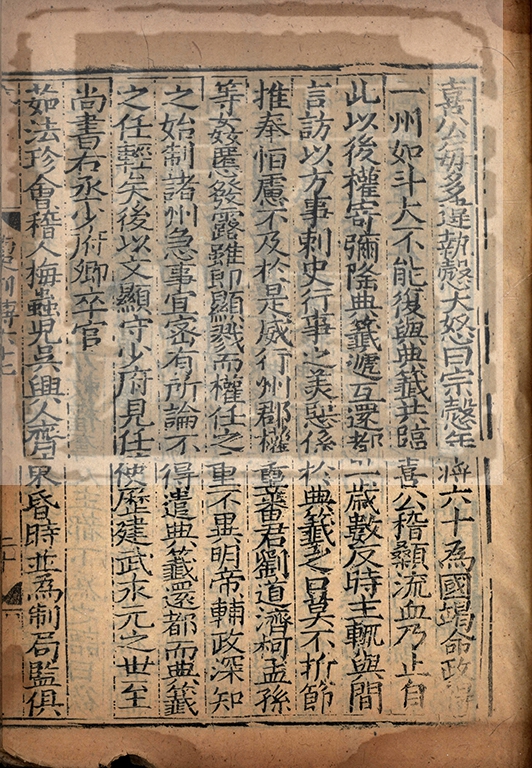 喜公每多違執慤大怒曰宗慤年將六十為國竭命政得
一州如斗大不能復與典籤共臨喜公稽顙流血乃止自
此以後權寄彌隆典籤遞互還都一歲數反時主輒與閒
言訪以方事刺史行事之美惡係於典籤之口莫不折節
推奉恒慮不及於是威行州郡權重蕃君劉道濟柯孟孫
等姦慝發露雖即顯戮而權任之重不異明帝輔政深知
之始制諸州急事宜密有所論不得遣典籤還都而典籤
之任輕矣後以文顯守少府見任使歷建武永元之世至
尚書右丞少府卿卒官
茹法珍會稽人梅蟲児吳興人齊東昏時並為制局監俱